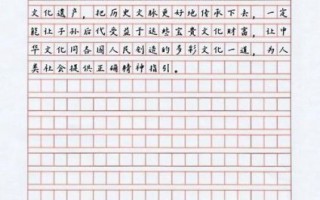 文化遗产，把历史文脉更好地传承下去，一定
能让子孙后代受益于这些宝贵文化财富，让中
华文化同各国人民创造的多彩文化一道，为人
类社会提供正确精神指引。